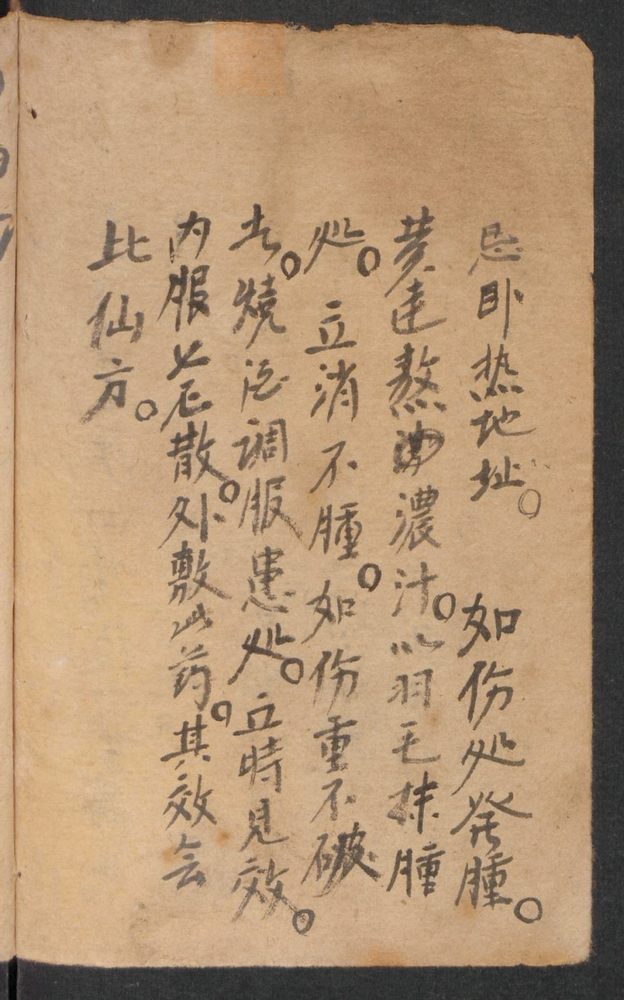 忌卧热地址。 如伤处発腫。
黄連熬濃汁。以羽毛抹腫
处。立消不腫。如伤重不破
者。燒酒調服患处。立時見效。
内服七厘散。外敷此药。其效会
比仙方。